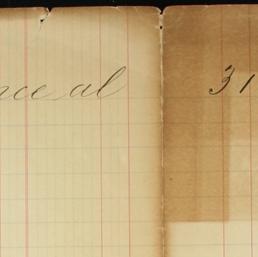 nce al 31